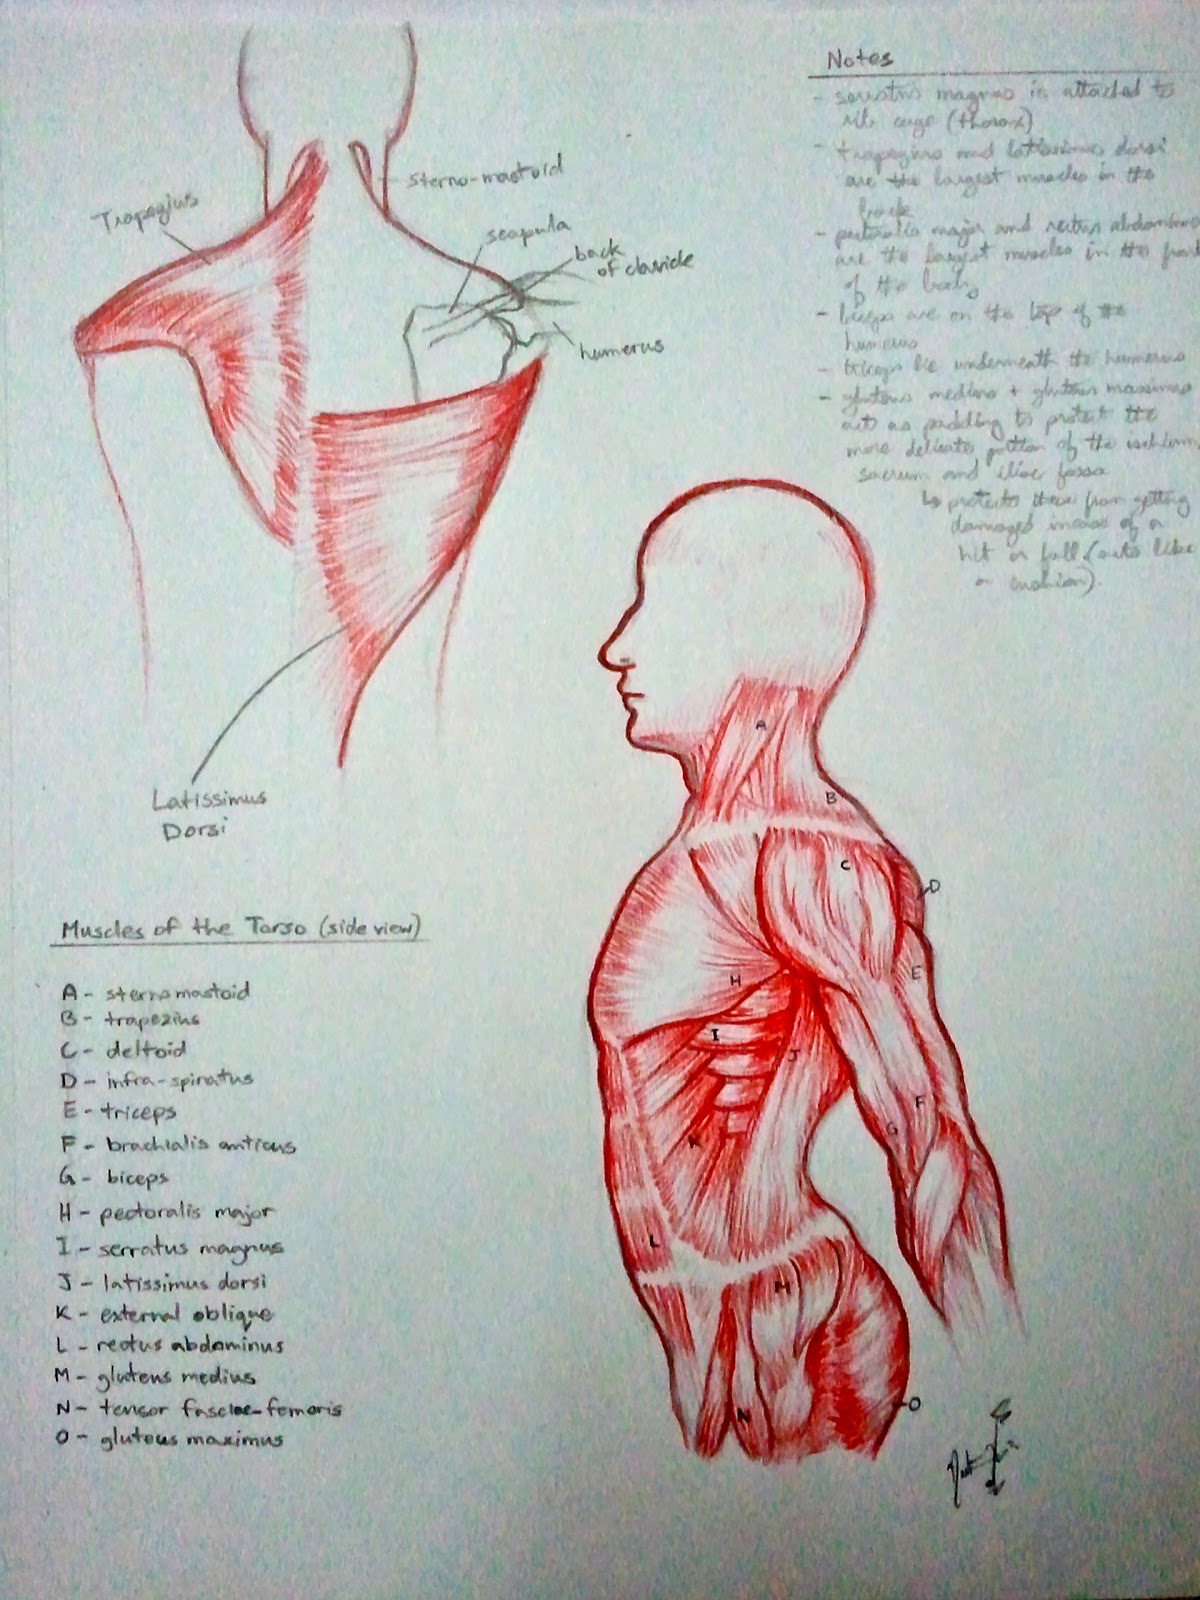 Trapezius
sterno-mastoid
scapula
back
of clavicle
humerus
Latissimus
Dorsi
Notes
- serratus magnus is attached to
rib cage (thorax)
- trapezius and latissimus dorsi
are the largest muscles in the
back
- pectoralis major and rectus abdominus
are the largest muscles in the front
of the body
- biceps are on the top of the
humerus
- triceps lie underneath the humerus
- gluteus medius + gluteus maximus
act as padding to protect the
more delicate portion of the ischium,
sacrum and iliac fossa
↳ protects these from getting
damaged incase of a
hit or fall (acts like
a cushion).
A
B
C
D
E
H
I
J
F
G
K
L
M
N
O
Muscles of the Torso (side view)
A - sternomastoid
B - trapezius
C - deltoid
D - infra-spiratus
E - triceps
F - brachialis anticus
G - biceps
H - pectoralis major
I - serratus magnus
J - latissimus dorsi
K - external oblique
L - rectus abdominus
M - gluteus medius
N - tensor fasciae-femoris
O - gluteus maximus